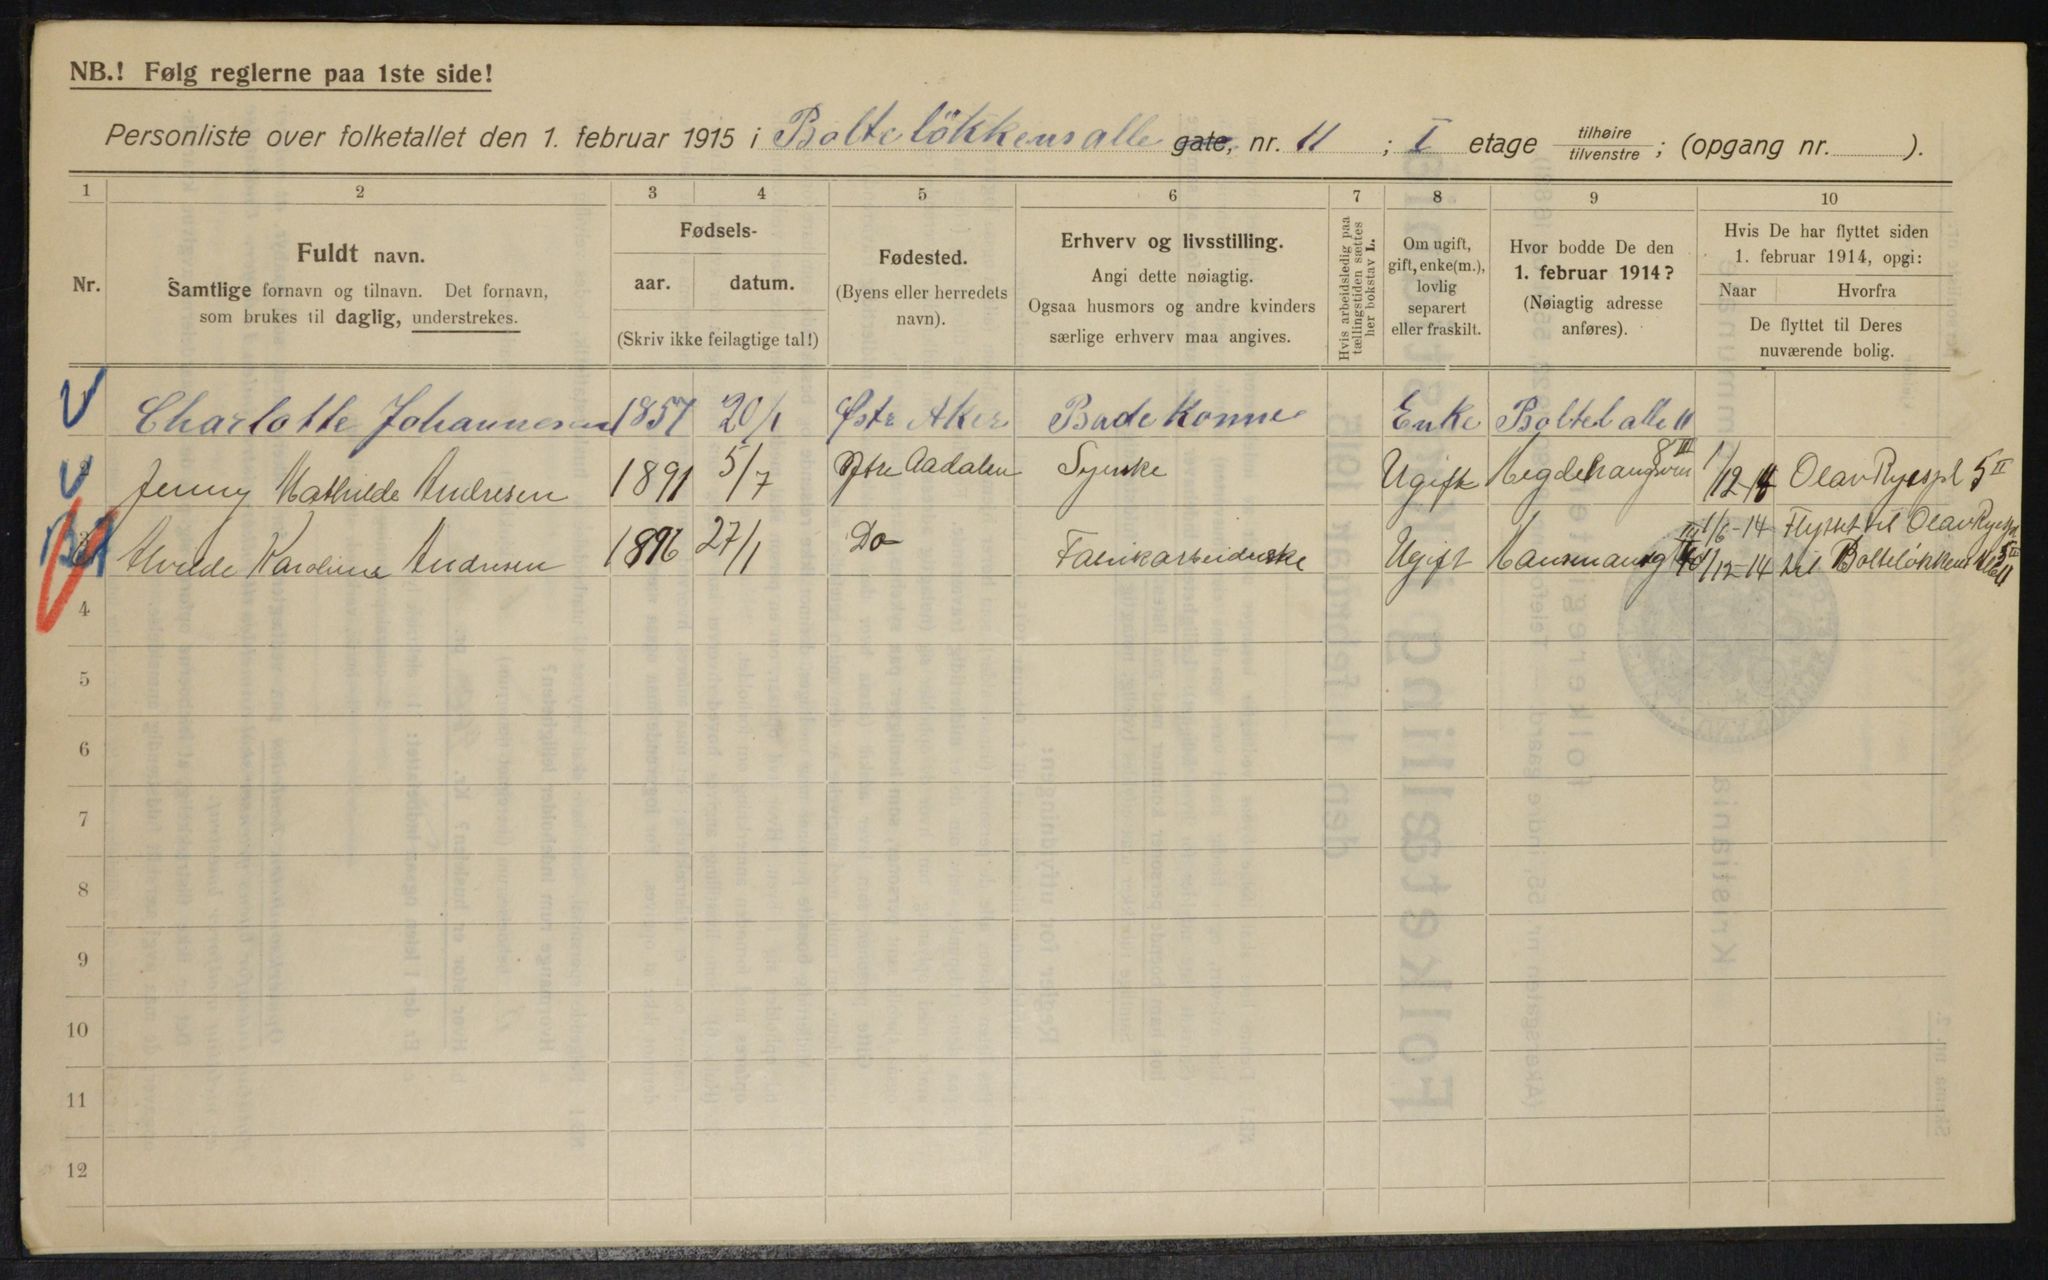 NB.! Følg reglerne paa 1ste side!
Personliste over folketallet den 1. februar 1915 i Bolteløkkens alle gate, nr. 11; I etage tilhøire tilvenstre; (opgang nr. ).
1 2 3 4 5 6 7 8 9 10
Nr.
Fuldt navn.
Samtlige fornavn og tilnavn. Det fornavn,
som brukes til daglig, understrekes.
Fødsels-
aar. datum.
(Skriv ikke feilagtige tal!)
Fødested.
(Byens eller herredets
navn).
Erhverv og livsstilling.
Angi dette nøiagtig.
Ogsaa husmors og andre kvinders
særlige erhverv maa angives.
Hvis arbeidsledig paa
tællingstiden sættes
her bokstav L.
Om ugift,
gift, enke(m.),
lovlig
separert
eller fraskilt.
Hvor bodde De den
1. februar 1914?
(Nøiagtig adresse
anføres).
Hvis De har flyttet siden
1. februar 1914, opgi:
Naar Hvorfra
De flyttet til Deres
nuværende bolig.
Charlotte Johannesen 1857 20/1 Østr Aker Badekonne Enke Boltel alle 11
2 Jenny Mathilde Andresen 1891 5/7 Ytre Aadalen Syerske Ugift 8 III 1/12-14 Olav Ryespl 5 II
3 Alvilde Karoline Andresen 1896 27/1 Do Fabrikarbeiderske Ugift 1/6-14 Flyttet til Olav Ryespl 5 II
1/12-14 til Bolteløkkens Alle 11
4
5
6
7
8
9
10
11
12